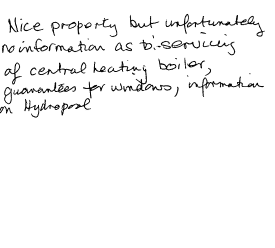 Nice property but unfortunately
no information as to servicing
of central heating boiler,
guarantees for windows, information
on Hydropool